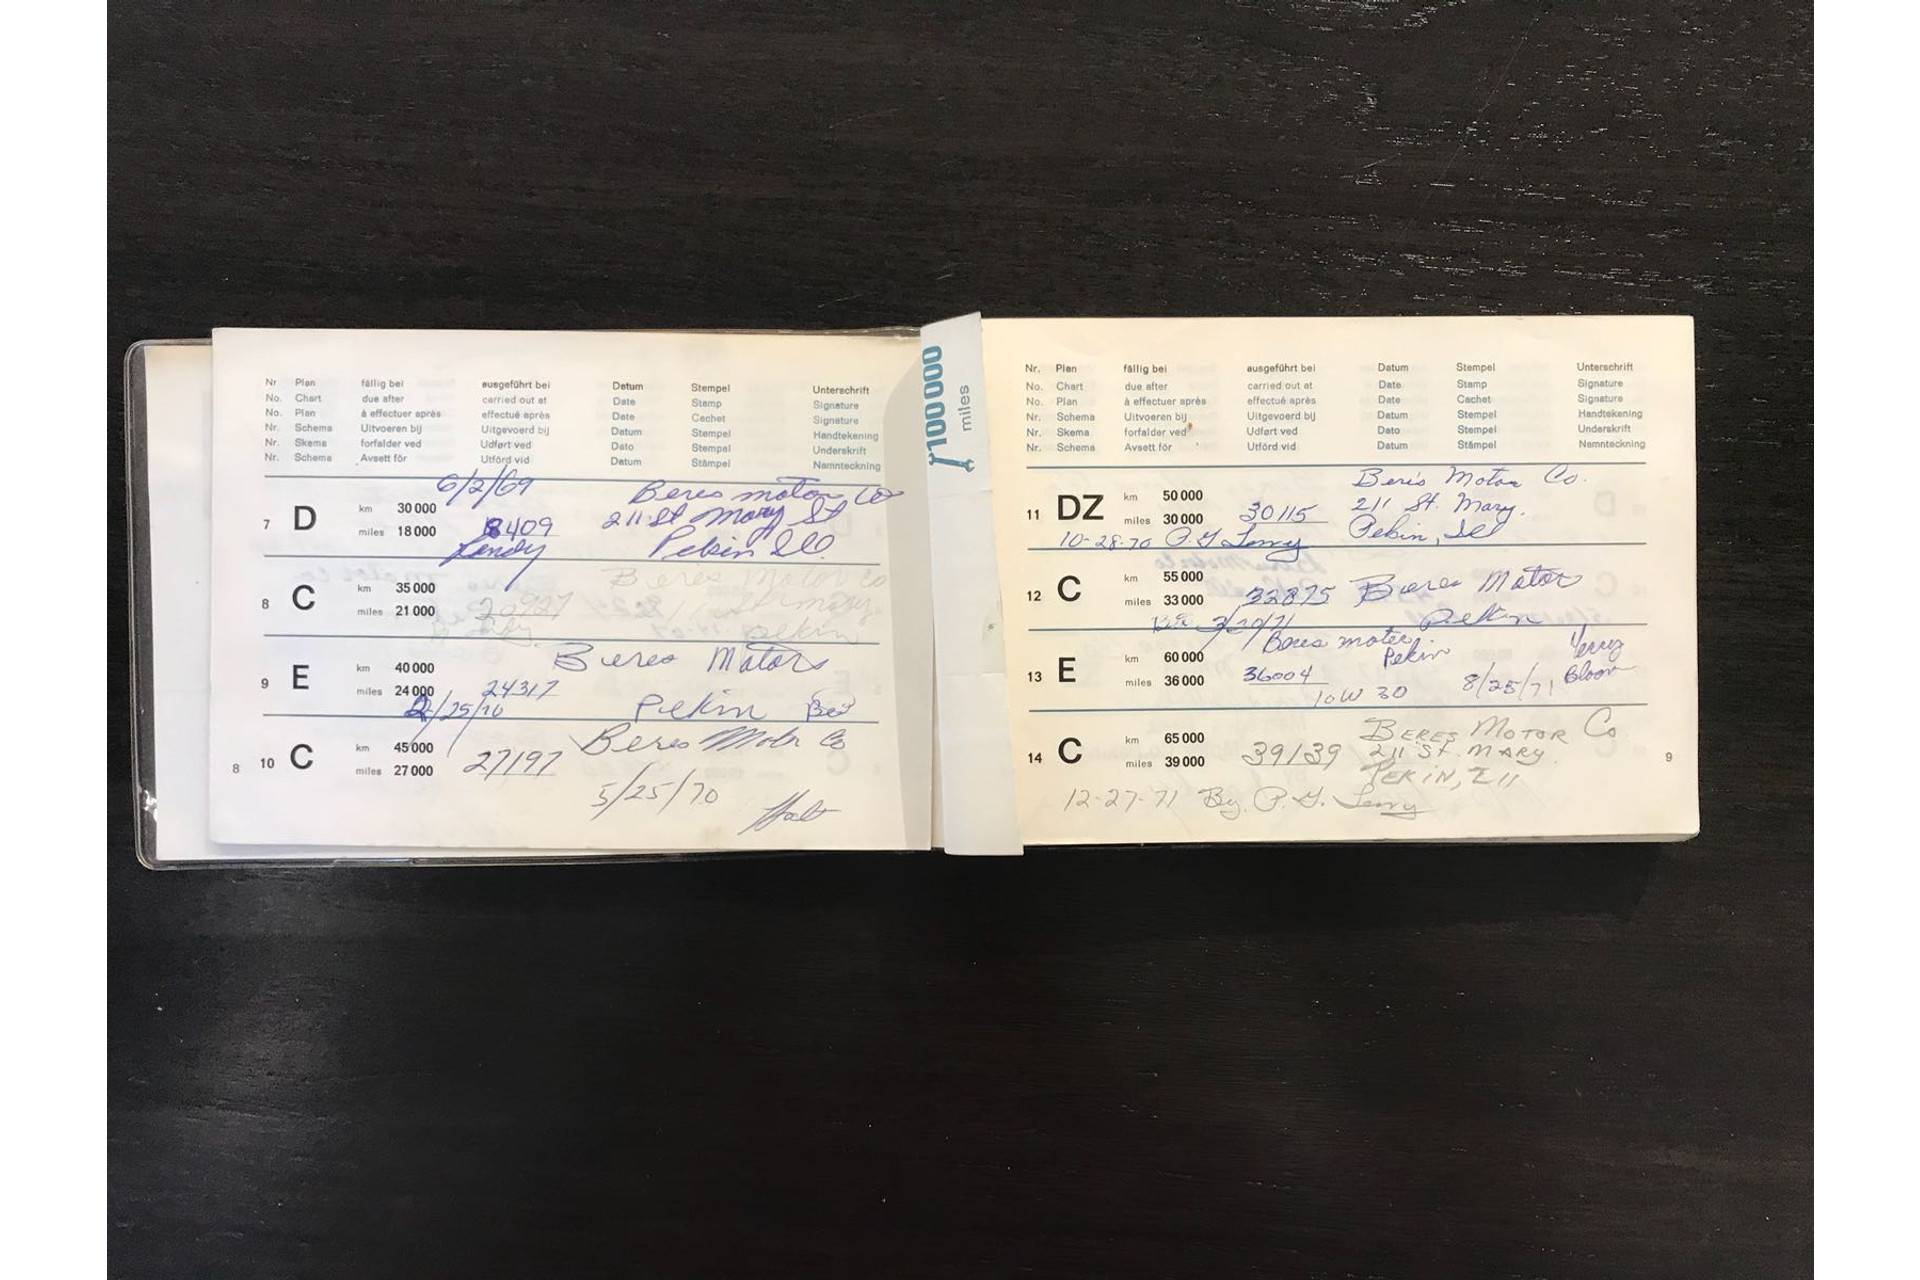 Nr. Plan fällig bei ausgeführt bei Datum Stempel Unterschrift
No. Chart due after carried out at Date Stamp Signature
No. Plan à effectuer après effectué après Date Cachet Signature
Nr. Schema Uitvoeren bij Uitgevoerd bij Datum Stempel Handtekening
Nr. Skema forfalder ved Udført ved Dato Stempel Underskrift
Nr. Schema Avsett för Utförd vid Datum Stämpel Namnteckning
6/2/69 Beres Motor Co
7 D km 30 000 211 St Mary St
miles 18 000 8409 Pekin Ill
8 C km 35 000 Beres Motor Co
miles 21 000 20927 St Mary
Pekin
Beres Motors
9 E km 40 000
miles 24 000 24317
2/25/70 Pekin
10 C km 45 000 Beres Motor Co
miles 27 000 27197
5/25/70
8
100 000
miles
Nr. Plan fällig bei ausgeführt bei Datum Stempel Unterschrift
No. Chart due after carried out at Date Stamp Signature
No. Plan à effectuer après effectué après Date Cachet Signature
Nr. Schema Uitvoeren bij Uitgevoerd bij Datum Stempel Handtekening
Nr. Skema forfalder ved Udført ved Dato Stempel Underskrift
Nr. Schema Avsett för Utförd vid Datum Stämpel Namnteckning
Beres Motor Co.
11 DZ km 50 000 211 St. Mary.
miles 30 000 30115 Pekin, Ill
10-28-70
12 C km 55 000
miles 33 000 32875 Beres Motor
3/20/71 Pekin
Beres Motor. Pekin
13 E km 60 000
miles 36 000 36004
10W 30 8/25/71
14 C km 65 000 Beres Motor Co.
miles 39 000 39139 211 St. Mary.
Pekin, Ill
12-27-71 By. P. G.
9